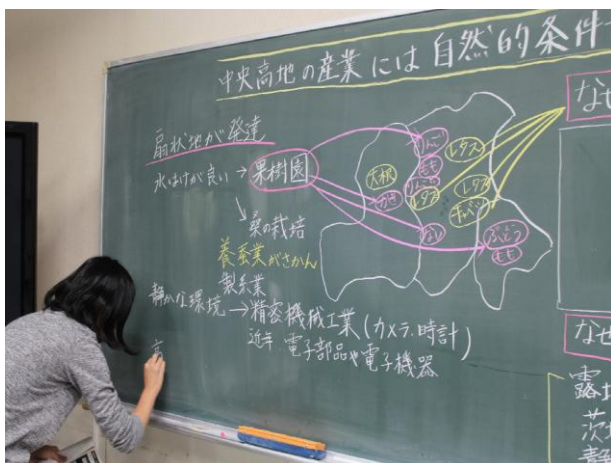 中央高地の産業には自然的条件
なぜ
扇状地が発達
水はけが良い → 果樹園
桑の栽培
養蚕業がさかん
製糸業
静かな環境 → 精密機械工業(カメラ、時計)
近年 電子部品や電子機器
高
りんご
もも
りんご
レタス
大根
かき
レタス
レタス
キャベツ
なし
ぶどう
もも
なぜ
露地
茨城